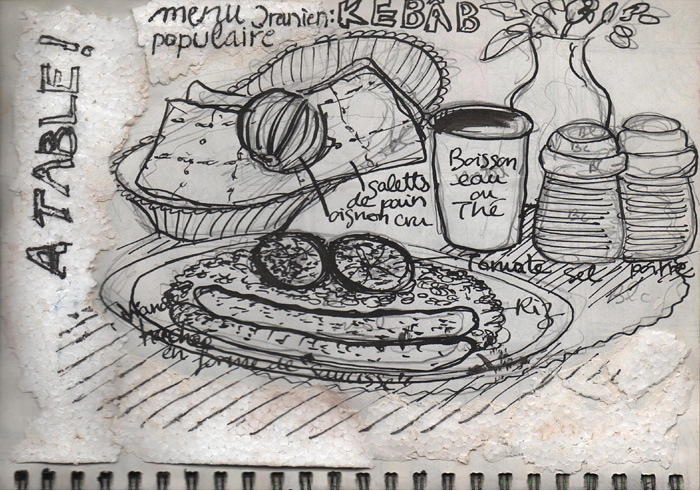 menu Iranien: KEBAB
populaire
A TABLE!
Galette
de pain
oignon cru
Boisson
eau
ou
Thé
Tomate
sel
poivre
Riz
hachée
en forme de saucisse